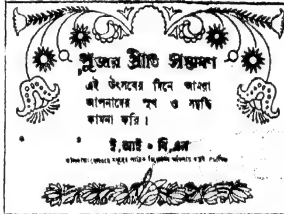 পূজার প্রীতি সম্ভাষণ
এই উৎসবের দিনে আমরা
আপনাদের সুখ ও সমৃদ্ধি
কামনা করি।
ই, আই • বি, এন